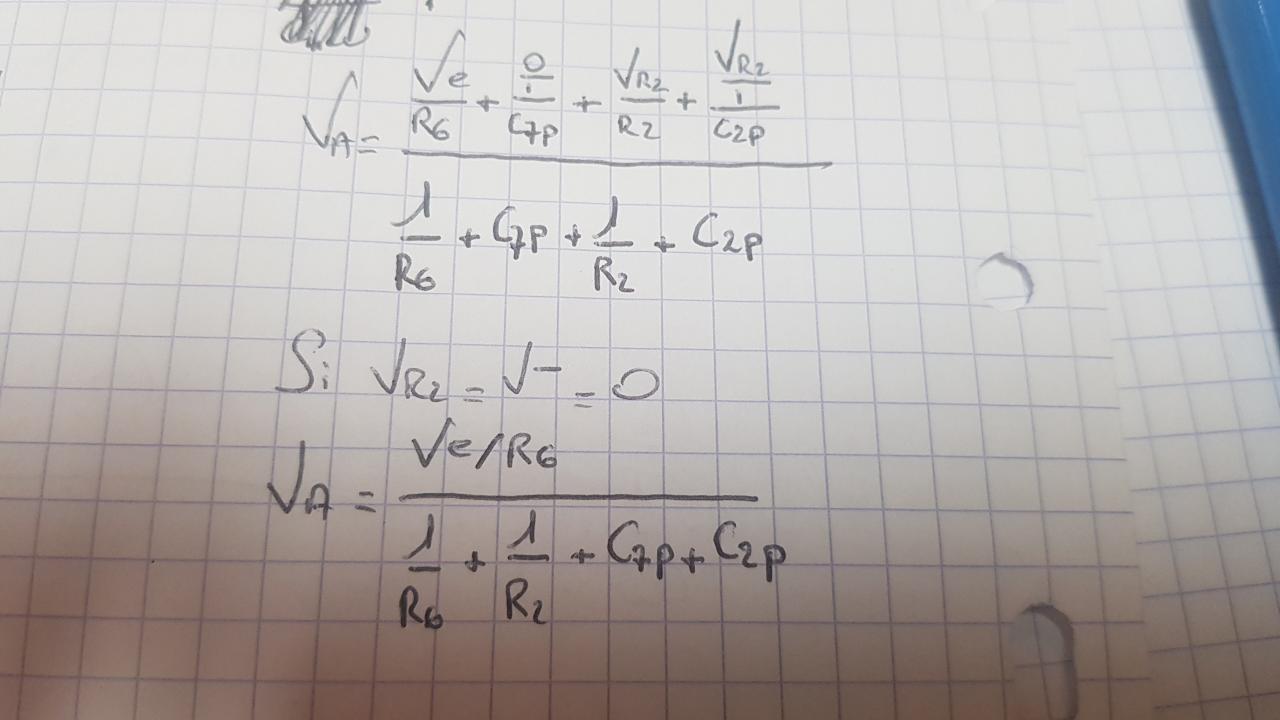 VA = (Ve/R6 + 0/(1/C7p) + VR2/R2 + VR2/(1/C2p)) / (1/R6 + C7p + 1/R2 + C2p)
Si VR2 = V- = 0
VA = (Ve/R6) / (1/R6 + 1/R2 + C7p + C2p)